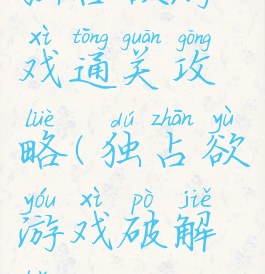 xì tōng guān gōng
戏通关攻
lüè dú zhān yù
略(独占欲
yóu xì pò jiě
游戏破解